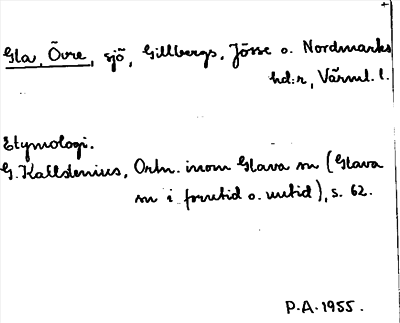 Gla, Övre, sjö, Gillbergs, Jösse o. Nordmarks
hd:r, Värml. l.
Etymologi.
G. Kalldenius, Ortn. inom Glava sn (Glava
sn i forntid o. nutid), s. 62.
P.A. 1955.